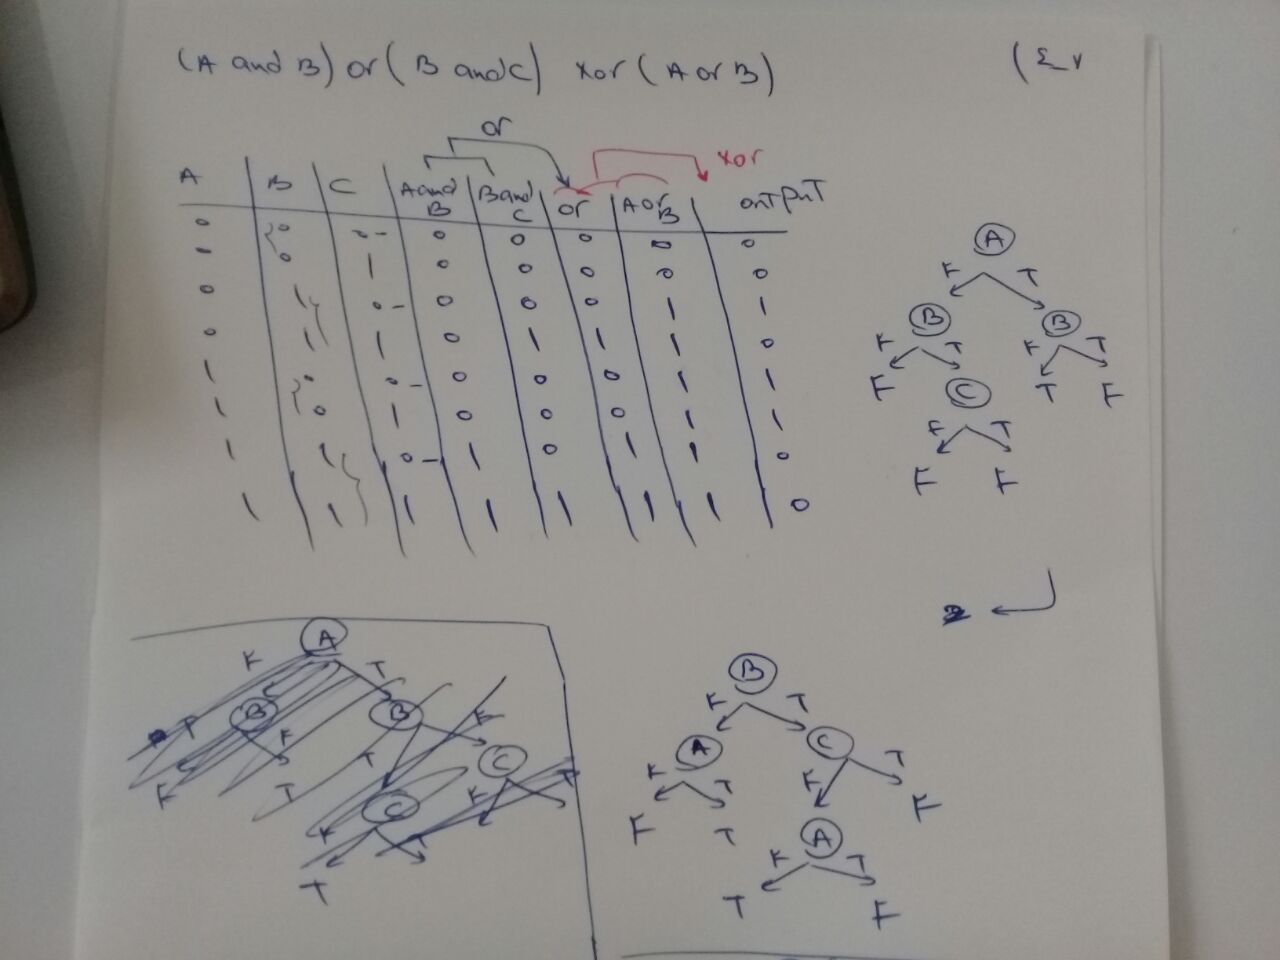 (A and B) or (B and C) xor (A or B)
(٤_٧
or
xor
A B C A and B B and C or A or B output
0 0 0 0 0 0 0 0
0 0 1 0 0 0 0 0
0 1 0 0 0 0 1 1
0 1 1 0 1 1 1 0
1 0 0 0 0 0 1 1
1 0 1 0 0 0 1 1
1 1 0 1 0 1 1 0
1 1 1 1 1 1 1 0
A
F T
B B
F T F T
F C T F
F T
F F
A
F T
B B F
T F T C
F T C F T
F T
T
B
F T
A C
F T F T
F T A F
F T
T F